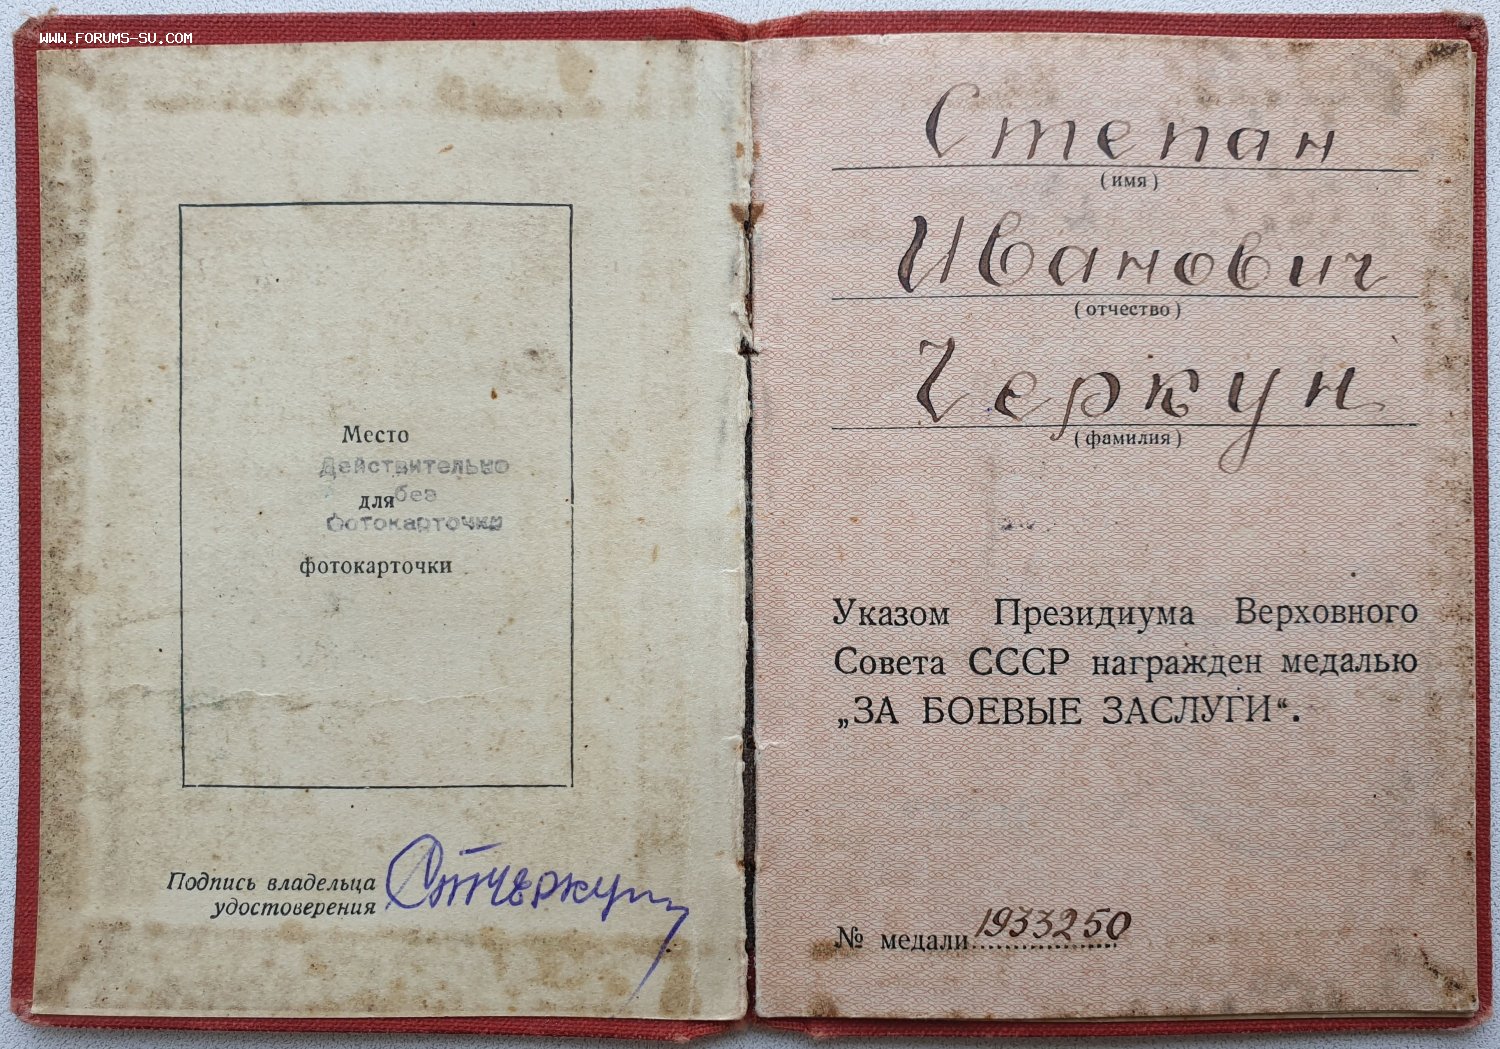 WWW.FORUMS-SU.COM
Место
Действительно
для без
фотокарточки
фотокарточки
Подпись владельца
удостоверения
Стчеркун
Степан
(имя)
Иванович
(отчество)
Черкун
(фамилия)
Указом Президиума Верховного
Совета СССР награжден медалью
„ЗА БОЕВЫЕ ЗАСЛУГИ“.
№ медали 1933250